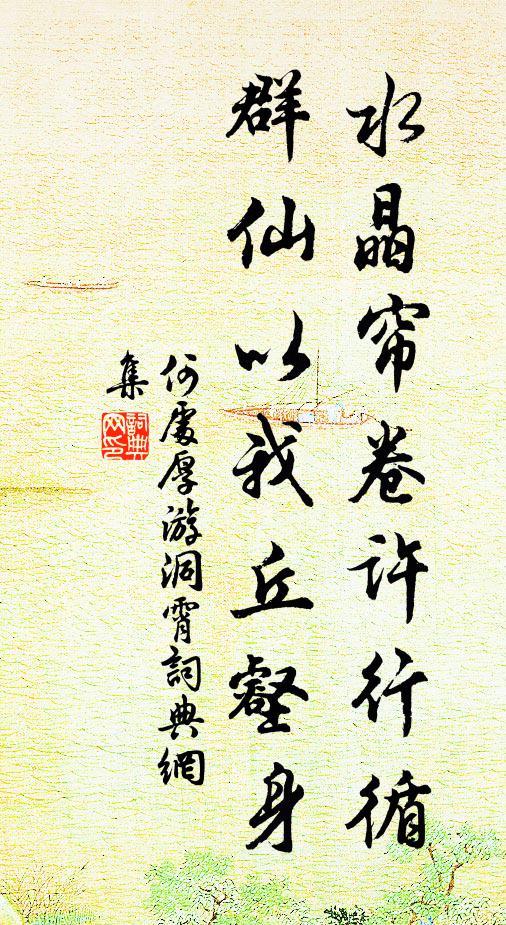 水晶帘卷许行循
群仙以我丘壑身
何處厚游洞霄詞典網
集
詞典網印